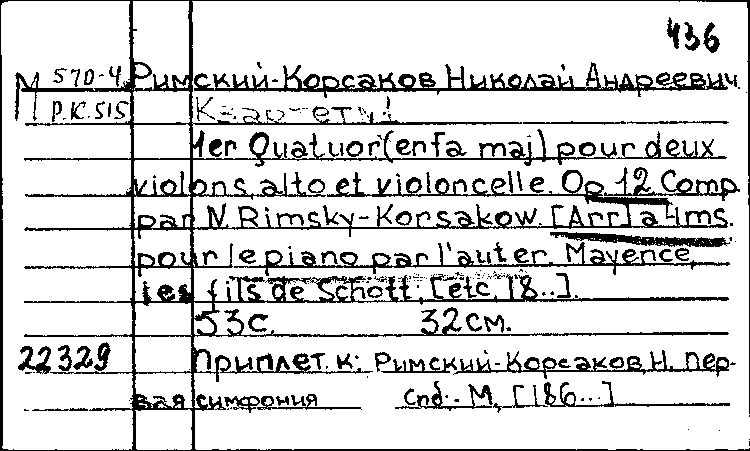 436
М 570-4 Римский-Корсаков, Николай Андреевич
Р.К.515 Квартеты
1er Quatuor (en fa maj) pour deux
violons, alto et violoncelle. Op. 12 Comp.
par N. Rimsky-Korsakow. [Arr] a 4ms.
pour le piano par l'auter. Mayence,
les fils de Schott, [etc, 18..].
53с. 32см.
22329 Приплет. к: Римский-Корсаков, Н. Пер-
вая симфония Спб.- М, [186...]